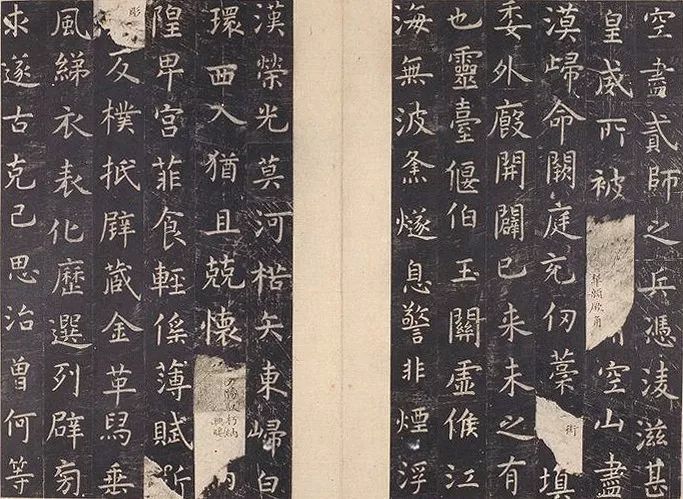 空盡貳師之兵憑淩滋甚
皇威所被顙厥角空山盡
漠歸命闕庭充仞藁街填
委外廄開闢已来未之有
也靈臺偃伯玉關虛候江
海無波烽燧息警非煙浮
漢榮光莫河楛矢東歸白
環西入猶且兢懷夕惕馭朽納
隍卑宮菲食輕傜薄賦斲
彫反樸抵璧藏金革舄垂
風綈衣表化歷選列辟旁
求遂古克己思治曾何等